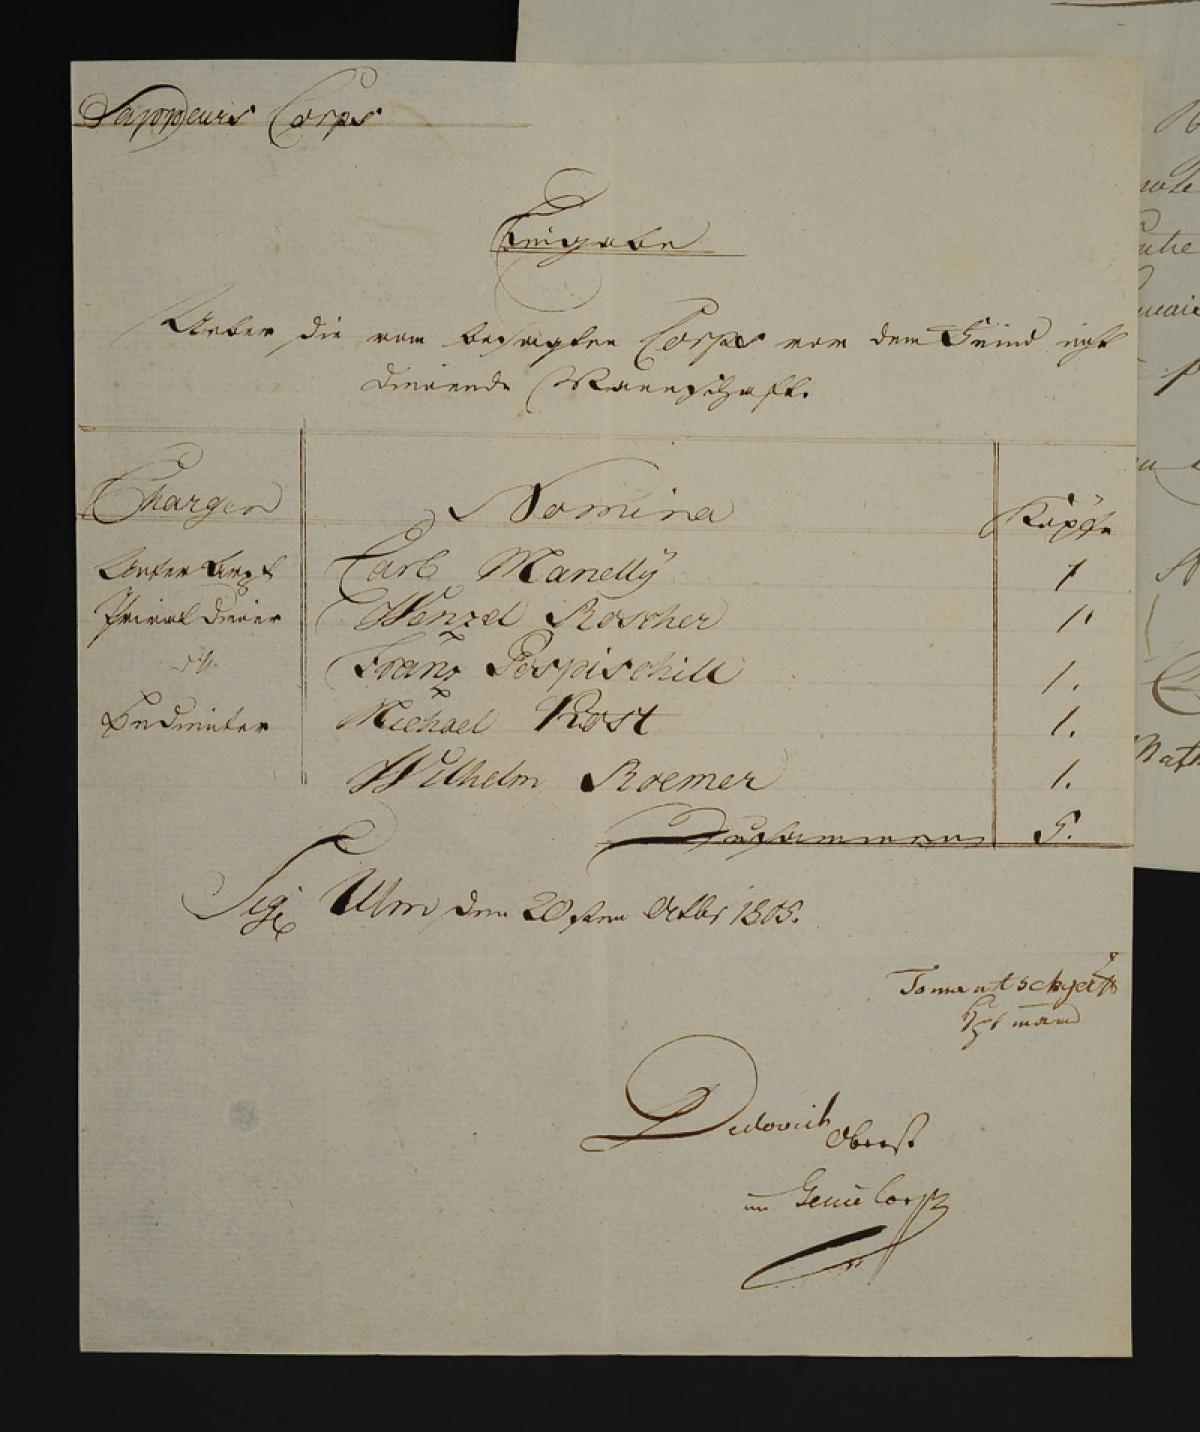 Sappeurs Corps
Eingabe
Ueber die vom besagten Corps vor dem Feind nicht
dienende Mannschaft.
Chargen Nomina Köpfe
Unter Arzt Carl Manelly 1
Privat Diener Wenzel Roscher 1.
dto. Franz Pospischill 1.
Bedienter Michael Rost 1.
Wilhelm Roemer 1.
Zusammen 5.
Sig. Ulm den 20sten Octbr 1805.
Hptmann
Dedovich Oberst
im Genie Corps